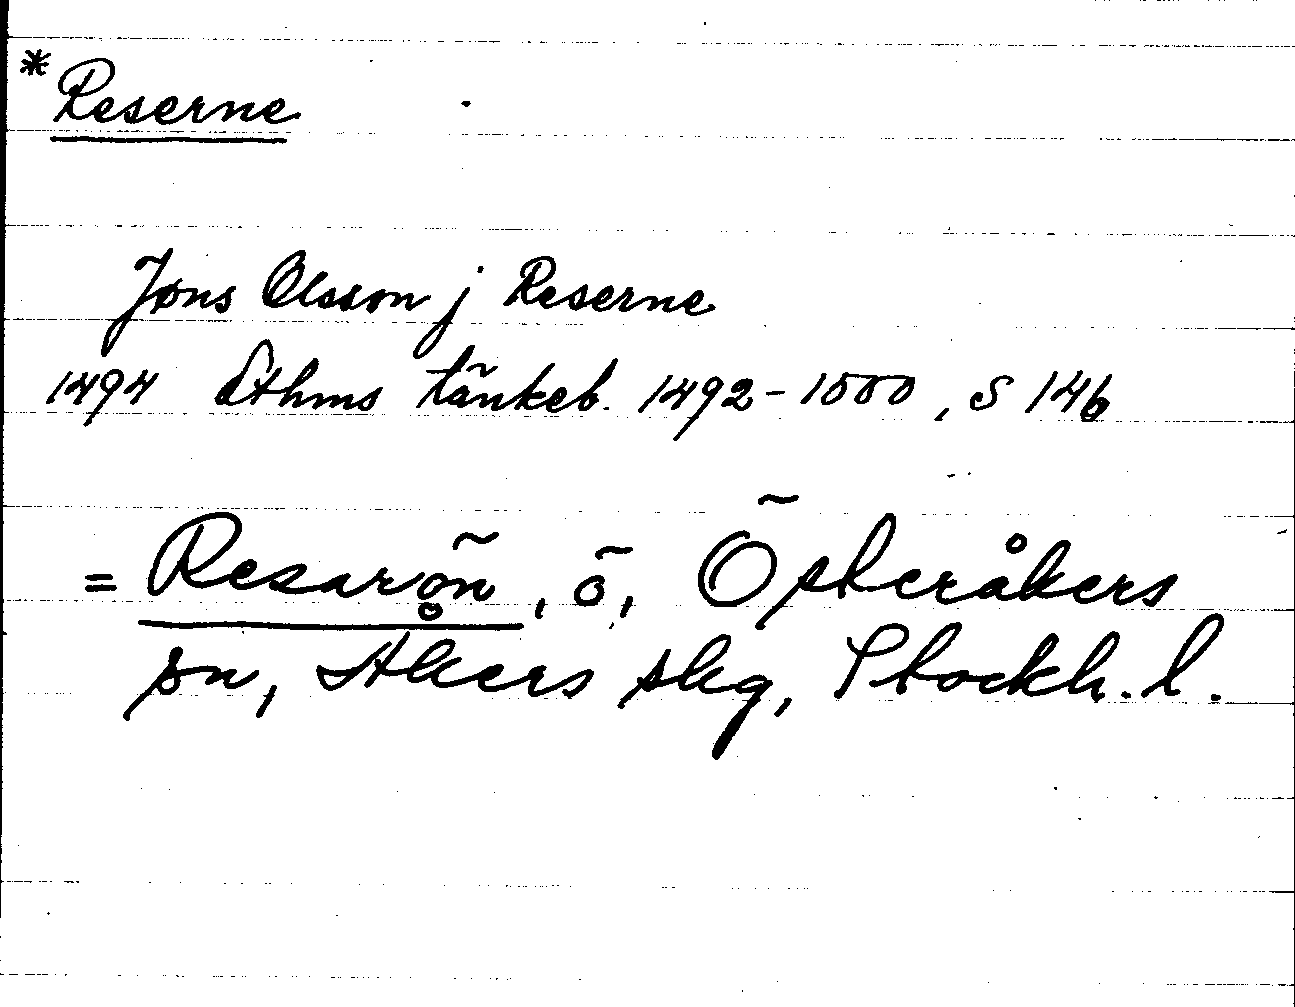 *Reserne
Jøns Olsson j Reserne
1494 Sthms tänkeb. 1492-1500, S 146
= Resarön, ö, Österåkers
sn, Åkers skg, Stockh. l.